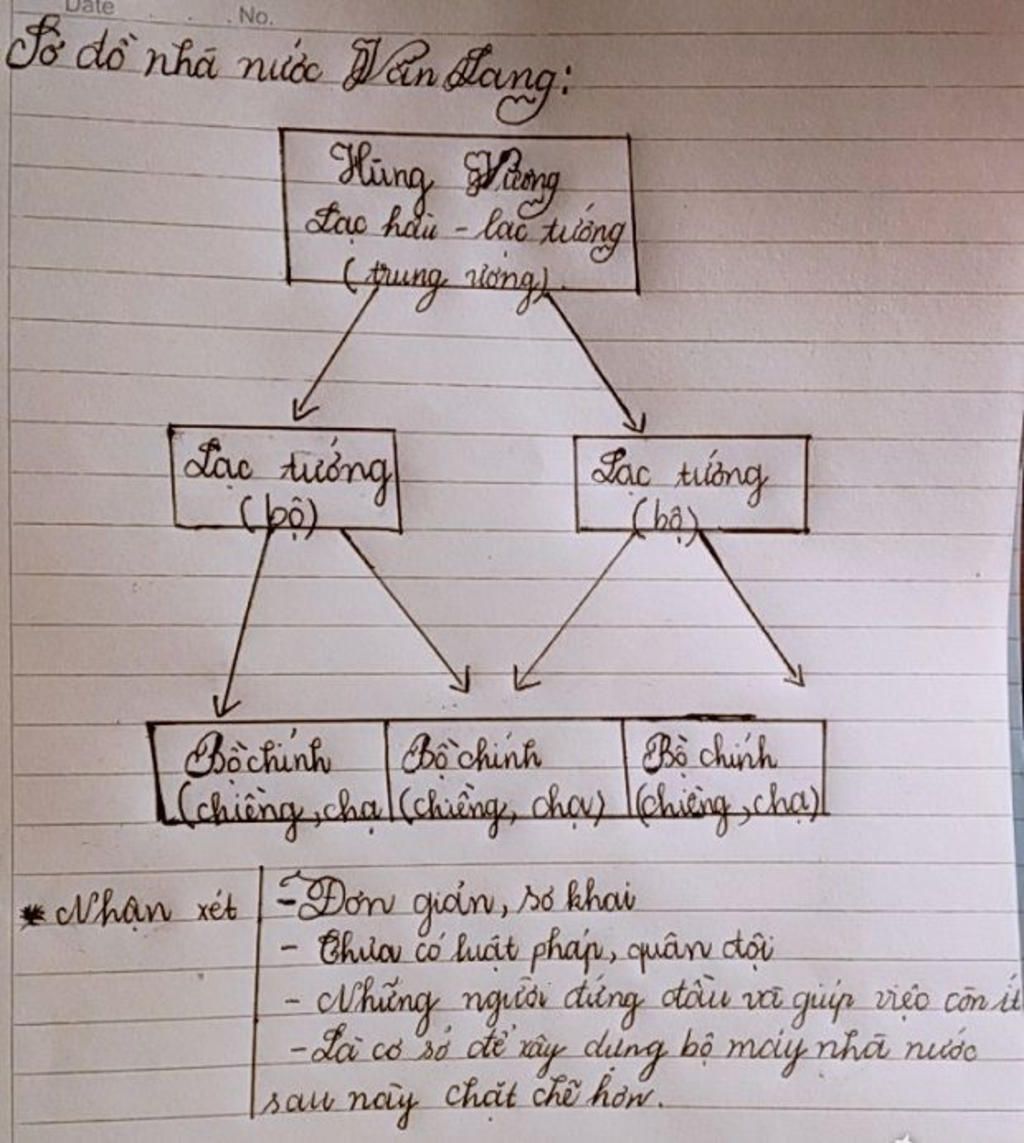 Date . . . No.
Sơ đồ nhà nước Văn Lang:
Hùng Vương
Lạc hầu - lạc tướng
(trung ương)
Lạc tướng
(bộ)
Lạc tướng
(bộ)
Bồ chính
(chiềng, chạ
Bồ chính
(chiềng, chạ)
Bồ chính
(chiềng, chạ)
* Nhận xét
- Đơn giản, sơ khai
- Chưa có luật pháp, quân đội
- Những người đứng đầu và giúp việc còn ít
- Là cơ sở để xây dựng bộ máy nhà nước
sau này chặt chẽ hơn.